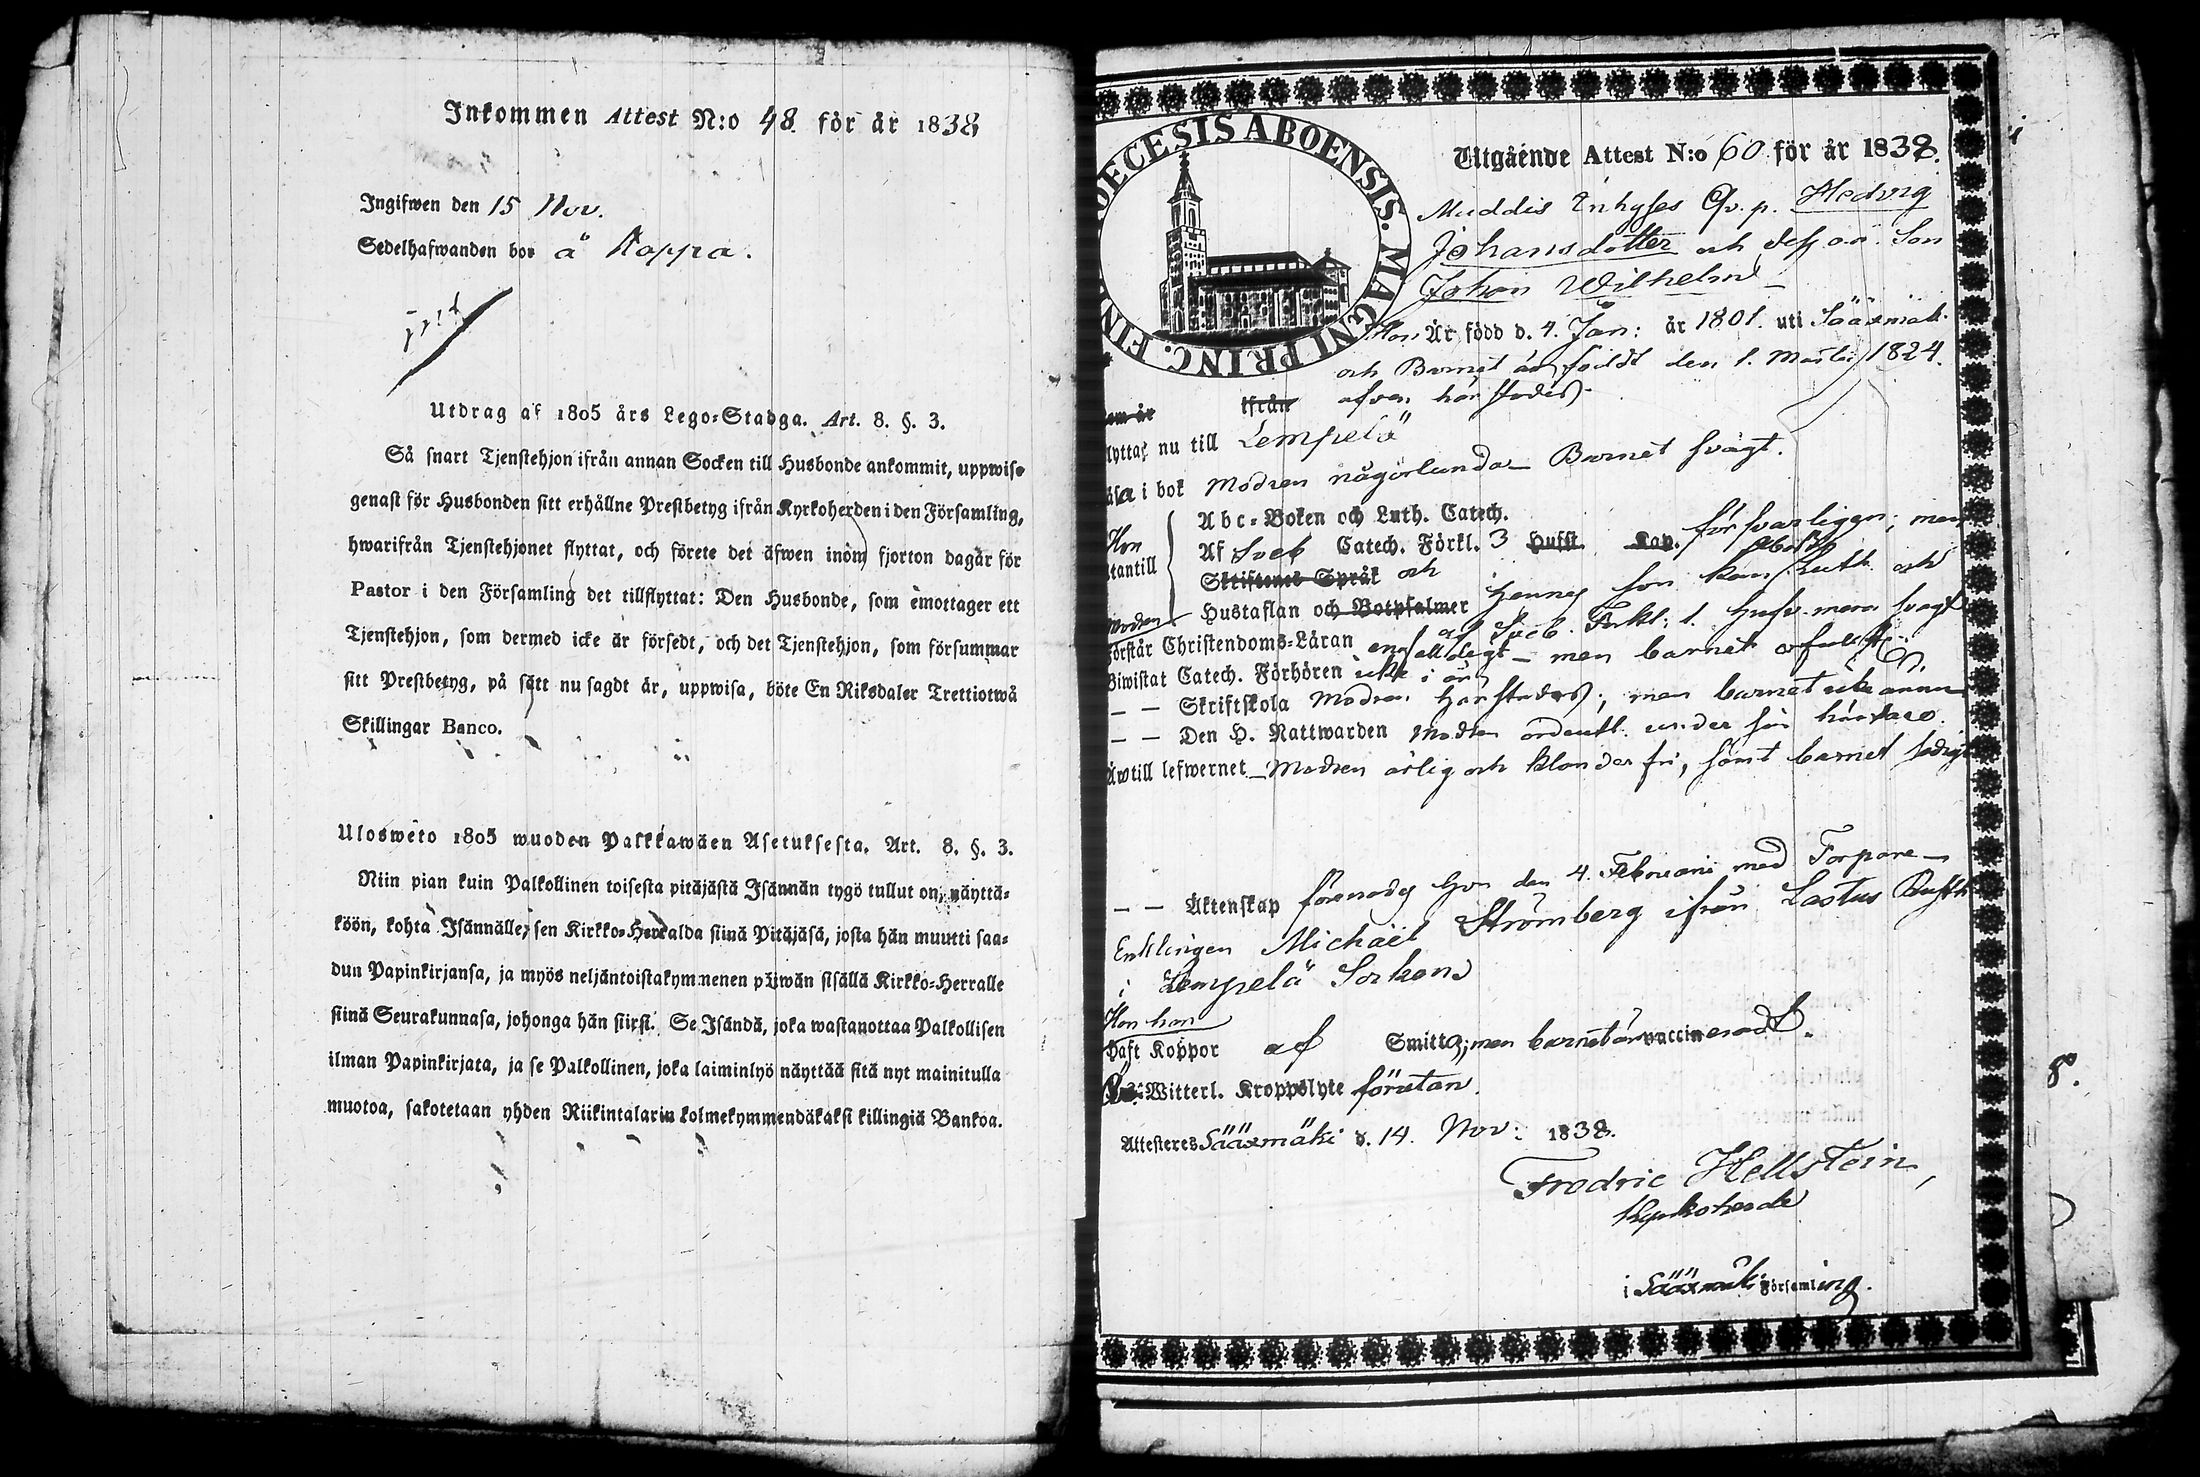 Inkommen Attest N:o 48. för år 1838
Ingifwen den 15 Nov.
Sedelhafwanden bor å Koppa.
Utdrag af 1805 års Lego-Stadga. Art. 8. §. 3.
Så snart Tjenstehjon ifrån annan Socken till Husbonde ankommit, uppwise
genast för Husbonden sitt erhållne Prestbetyg ifrån Kyrkoherden i den Församling,
hwarifrån Tjenstehjonet flyttat, och förete det äfwen inom fjorton dagar för
Pastor i den Församling det tillflyttat: Den Husbonde, som emottager ett
Tjenstehjon, som dermed icke är försedt, och det Tjenstehjon, som försummar
sitt Prestbetyg, på sätt nu sagdt är, uppwisa, böte En Riksdaler Trettiotwå
Skillingar Banco.
Ulosweto 1805 wuoden Palkkawäen Asetuksesta. Art. 8. §. 3.
Niin pian kuin Palkollinen toisesta pitäjästä Isännän tygö tullut on, näyttä-
köön, kohta Isännälle, sen Kirkko-Herralda siinä Pitäjäsä, josta hän muutti saa-
dun Papinkirjansa, ja myös neljäntoistakymmenen päiwän sisällä Kirkko-Herralle
siinä Seurakunnasa, johonga hän siirsi. Se Isändä, joka wastanottaa Palkollisen
ilman Papinkirjata, ja se Palkollinen, joka laiminlyö näyttää sitä nyt mainitulla
muotoa, sakotetaan yhden Riikintalarin kolmekymmendäkaksi killingiä Bankoa.
DIOECESIS ABOENSIS. MAGNI PRINC. FIN
Utgående Attest N:o 60 för år 1838.
Muddis Inhyses Qv. p. Hedvig
Johansdotter och dess oä. Son
Johan Wilhelm
Hon Är född d. 4. Jan: år 1801. uti Sääxmäki
och Barnet är födt den 1. Martii 1824.
om är ifrån afven härstädes
lyttar nu till Lempelä
äsa i bok Modren någorlunda Barnet svagt.
Hon Abc-Boken och Luth. Catech.
utantill Af Sveb Catech. Förkl. 3 Husst. Kap. försvarligen; men
Skriftenes Språk och hennes son kan Luth. och
Modren Hustaflan och Botpsalmer af Sveb. Förkl. 1. svagt
Förstår Christendoms-Läran enfalldigt – men barnet
Biwistat Catech. Förhören icke i år
– – Skriftskola Modren härstädes; men barnet icke ännu
– – Den H. Nattwarden Modren ordentl. under sin härvaro.
Är till lefwernet Modren ärlig och klanderfri, samt barnet sedigt
– – Äktenskap förenades hon den 4. Februarii med Torpare
Enklingen Michaël Strömberg ifrån Lastus Rusth.
i Lempelä Socken
Hon har
haft Koppor af Smitta; men barnet är vaccineradt.
Witterl. Kroppslyte förutan.
Attesteres Sääxmäki d. 14. Nov: 1838.
Fredric Hellstein,
Kyrkoherde
i Sääxmäki Församling.
8.